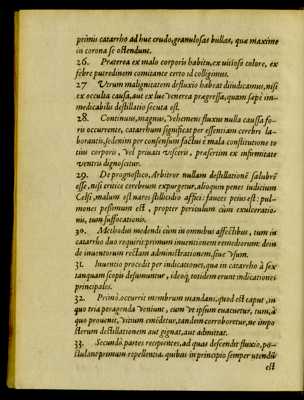 primis catarrho ad huc crudo, granulosas bullas, quæ maxime
in corona se ostendunt.
26. Præterea ex malo corporis habitu, ex vitioso colore, ex
febre putredinem comitante certo id colligimus.
27 Verum malignitatem defluxio habeat diiudicamus, nisi
ex occulta causa, aut ex lue Venerea progressa, quam sæpè im-
medicabilis destillatio secuta est.
28. Continuus, magnus, Vehemens fluxus nulla caussa fo-
ris occurrente, catarrhum significat per essentiam cerebro la-
borantis, sed enim per consensum factus è mala constitutione to
tius corporis, vel priuati visceris, præsertim ex infirmitate
ventris dignoscitur.
29. De prognostico, Arbitror nullam destillationē salubrē
esse, nisi critice cerebrum expurgetur, alioquin penes iudicium
Celsi, malum est nares stillicidio affici: fauces peius est: pul-
mones pessimum est, propter periculum cùm exulceratio-
nis, tum suffocationis.
30. Methodus medendi cùm in omnibus affectibus, tum in
catarrho duo requirit: primum inuentionem remediorum: dein
de inuentorum rectam administrationem, siue vsum.
31. Inuentio procedit per indicationes, quæ in catarrho à sex
tanquam scopis desumuntur, ideoq; totidem erunt indicationes
principales.
32. Primò, occurrit membrum mandans, quod est caput, in
quo tria peragenda veniunt, cum vt ipsum euacuetur, tum, à
quo prouenit, vitium emēdetur, tandem corroboretur, ne impo
sterum destillationem aut gignat, aut admittat.
33. Secundò, partes recipientes, ad quas descendit fluxio, po-
stulant primum repellentia. quibus in principio semper utendū
est